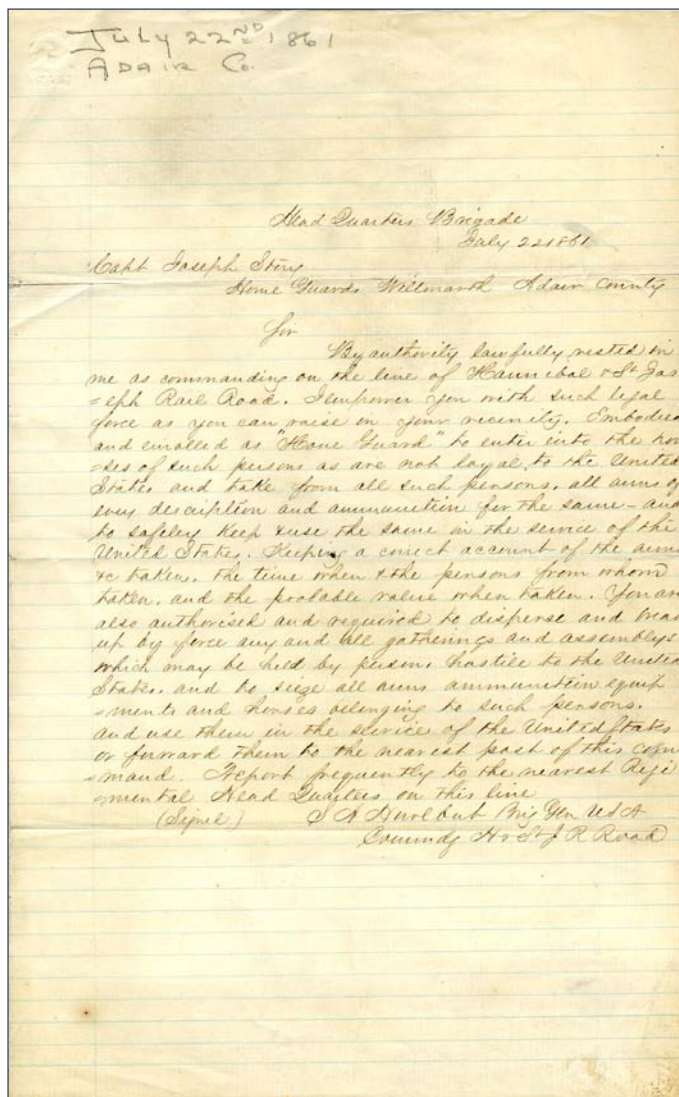 July 22ND 1861
ADAIR Co.
Head Quarters Brigade
July 22 1861
Capt Joseph Story
Home Guards Willmarth Adair County
Sir
By authority lawfully vested in
me as commanding on the line of Hannibal & St Jos
=eph Rail Road. I empower you with such legal
force as you can raise in your vicinity. Embodied
and enrolled as "Home Guard" to enter into the hou
=ses of such persons as are not loyal to the United
States and take from all such persons, all arms of
every discription and ammunition for the same - and
to safeley keep & use the same in the service of the
United States. Keeping a correct account of the arms
&c taken, the time when & the persons from whom
taken, and the probable value when taken. You are
also authorised and required to disperse and break
up by force any and all gatherings and assemblys
which may be held by persons hostile to the United
States, and to seize all arms ammunition equip
=ments and horses belonging to such persons.
and use them in the service of the United States
or forward them to the nearest post of this com
=mand. Report frequently to the nearest Regi
=mental Head Quarters on this line
(Signed) S A Hurlbut Brig Gen U S A
Commdg H & St J R Road